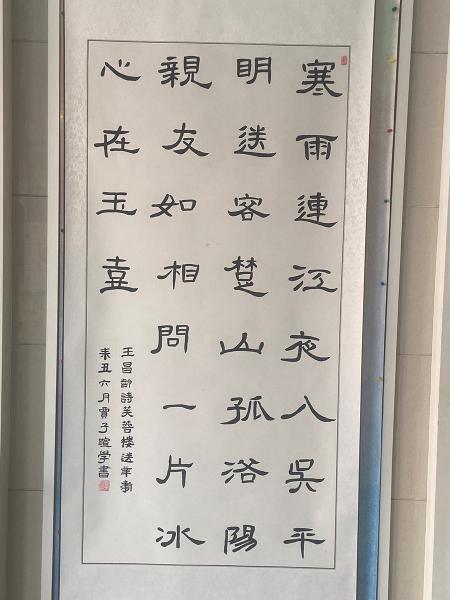 寒雨連江夜入吳平
明送客楚山孤洛陽
親友如相問一片冰
心在玉壺
王昌齡詩芙蓉樓送辛漸
辛丑六月賈子暄學書